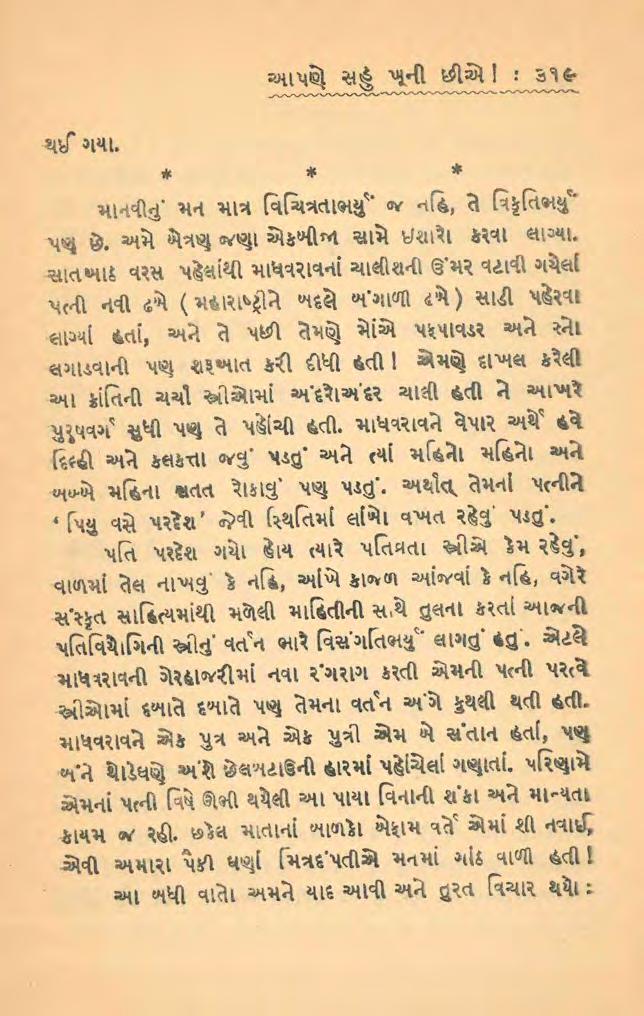 આપણે સહુ ખૂની છીએ! : ૩૧૯
થઈ ગયા.
* * *
માનવીનું મન માત્ર વિચિત્રતાભર્યું જ નહિ, તે વિકૃતિભર્યું
પણ છે. અમે બેત્રણ જણા એકબીજા સામે ઈશારો કરવા લાગ્યા.
સાતઆઠ વરસ પહેલાંથી માધવરાવનાં ચાલીશની ઉંમર વટાવી ગયેલાં
પત્ની નવી ઢબે ( મહારાષ્ટ્રીને બદલે બંગાળી ઢબે ) સાડી પહેરવા
લાગ્યાં હતાં, અને તે પછી તેમણે મોંએ પફપાવડર અને સ્નો
લગાડવાની પણ શરૂઆત કરી દીધી હતી! એમણે દાખલ કરેલી
આ ક્રાંતિની ચર્ચા સ્ત્રીઓમાં અંદરોઅંદર ચાલી હતી ને આખરે
પુરુષવર્ગ સુધી પણ તે પહોંચી હતી. માધવરાવને વેપાર અર્થે હવે
દિલ્હી અને કલકત્તા જવું પડતું અને ત્યાં મહિનો મહિનો અને
બબ્બે મહિના સતત રોકાવું પણ પડતું. અર્થાત્ તેમનાં પત્નીને
‘ પિયુ વસે પરદેશ’ જેવી સ્થિતિમાં લાંબો વખત રહેવું પડતું.
પતિ પરદેશ ગયો હોય ત્યારે પતિવ્રતા સ્ત્રીએ કેમ રહેવું,
વાળમાં તેલ નાખવું કે નહિ, આંખે કાજળ આંજવાં કે નહિ, વગેરે
સંસ્કૃત સાહિત્યમાંથી મળેલી માહિતીની સાથે તુલના કરતાં આજની
પતિવિયોગિની સ્ત્રીનું વર્તન ભારે વિસંગતિભર્યું લાગતું હતું. એટલે
માધવરાવની ગેરહાજરીમાં નવા રંગરાગ કરતી એમની પત્ની પરત્વે
સ્ત્રીઓમાં દબાતે દબાતે પણ તેમના વર્તન અંગે કુથલી થતી હતી.
માધવરાવને એક પુત્ર અને એક પુત્રી એમ બે સંતાન હતાં, પણ
બંને થોડેઘણે અંશે છેલબટાઉની હારમાં પહોંચેલાં ગણાતાં. પરિણામે
એમનાં પત્ની વિષે ઊભી થયેલી આ પાયા વિનાની શંકા અને માન્યતા
કાયમ જ રહી. છકેલ માતાનાં બાળકો બેફામ વર્તે એમાં શી નવાઈ,
એવી અમારા પૈકી ઘણાં મિત્રદંપતીએ મનમાં ગાંઠ વાળી હતી!
આ બધી વાતો અમને યાદ આવી અને તુરત વિચાર થયો :